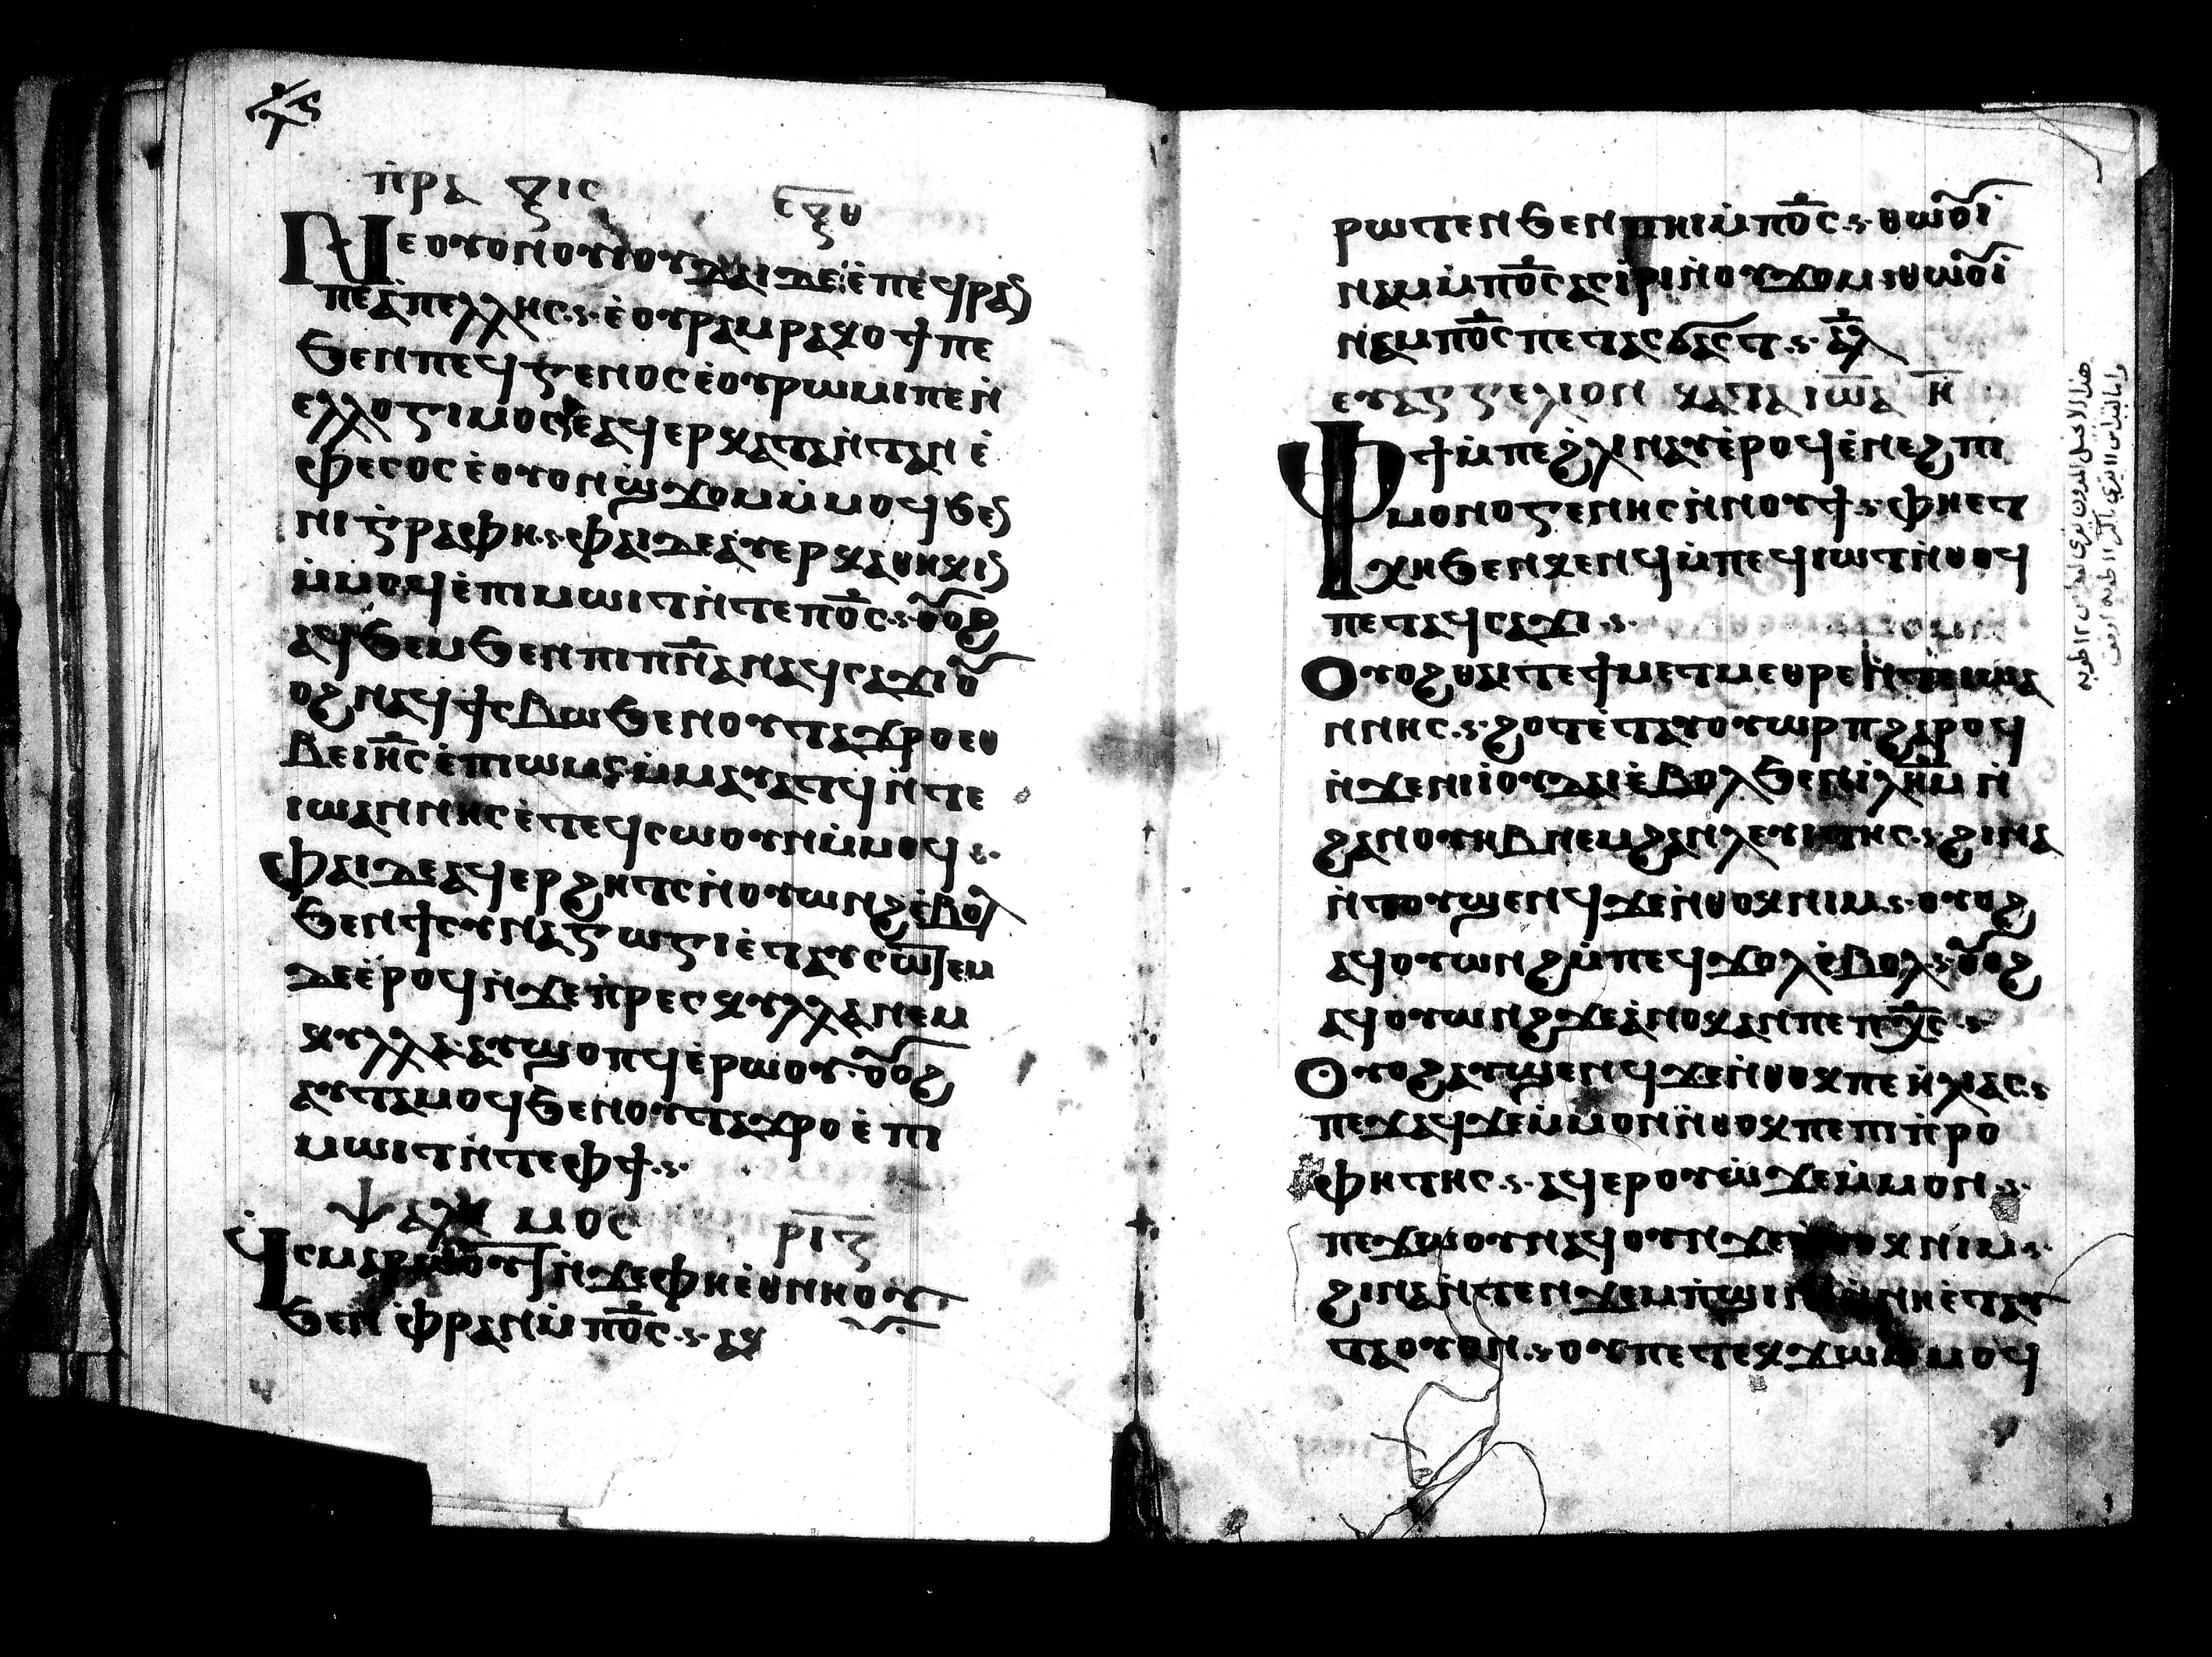 ⲡⲣⲁⲝⲓⲥ
ⲛⲉ ⲟⲩⲟⲛ ⲟⲩⲓⲟⲩⲇⲁⲓ ⲇⲉ ⲉ̀ⲡⲉϥⲣⲁⲛ
ⲡⲉ ⲁ̀ⲡⲉⲗⲗⲏⲥ ⲉ̀ⲟⲩⲣⲉⲙⲣⲁⲕⲟϯ ⲡⲉ
ϧⲉⲛ ⲡⲉϥⲅⲉⲛⲟⲥ ⲉ̀ⲟⲩⲣⲱⲙⲓ ⲡⲉ ⲛ̀
ⲉⲗⲗⲟⲅⲓⲙⲟⲥ ⲉⲁϥⲉⲣⲕⲁⲧⲁⲛⲧⲁⲛ ⲉ̀
ⲫⲉⲥⲟⲥ ⲉ̀ⲟⲩⲟⲛ ϣϫⲟⲙ ⲙ̀ⲙⲟϥ ϧⲉⲛ
ⲛⲓⲅ̀ⲣⲁⲫⲏ ⲫⲁⲓ ⲇⲉ ⲁⲩⲉⲣⲕⲁⲑⲏⲕⲓⲛ
ⲙ̀ⲙⲟϥ ⲉ̀ⲡⲓⲙⲱⲓⲧ ⲛ̀ⲧⲉ ⲡⲟ̅ⲥ̅ ⲟⲩⲟϩ
ⲁϥϧⲉⲙ ϧⲉⲛ ⲡⲓⲡ̅ⲛ̅ⲁ̅ ⲛⲁϥⲥⲁϫⲓ ⲟⲩ
ⲟϩ ⲛⲁϥϯⲥⲃⲱ ϧⲉⲛ ⲟⲩⲧⲁϫⲣⲟ ⲉⲑ
ⲃⲉ ⲓⲏ̅ⲥ̅ ⲉ̀ⲡⲓⲱⲙⲥ ⲙ̀ⲙⲁⲩⲁⲧϥ ⲛ̀ⲧⲉ
ⲓⲱⲁⲛⲛⲏⲥ ⲉ̀ⲧⲉϥⲥⲱⲟⲩⲛ ⲙ̀ⲙⲟϥ
ⲫⲁⲓ ⲇⲉ ⲁϥⲉⲣϩⲏⲧⲥ ⲛ̀ⲟⲩⲱⲛϩ ⲉ̀ⲃⲟⲗ
ϧⲉⲛ ϯⲥⲩⲛⲁⲅⲱⲅⲓ ⲉ̀ⲧⲁⲩⲥⲱⲧⲉⲙ
ⲇⲉ ⲉ̀ⲣⲟϥ ⲛ̀ϫⲉ ⲡ̀ⲣⲉⲥⲕⲩⲗⲗⲁ ⲛⲉⲙ
ⲕⲩⲗⲗⲁ ⲁⲩϣⲟⲡϥ ⲉ̀ⲣⲱⲟⲩ ⲟⲩⲟϩ
ⲁⲩⲧⲁⲙⲟϥ ϧⲉⲛ ⲟⲩⲧⲁϫⲣⲟ ⲉ̀ⲡⲓ
ⲙⲱⲓⲧ ⲛ̀ⲧⲉ ⲫϯ
ⲯⲁⲗⲙⲟⲥ ⲣⲓⲍ
ϥ̀ⲥⲙⲁⲣⲱⲟⲩⲧ ⲛ̀ϫⲉ ⲫⲏⲉ̀ⲑⲛⲏⲟⲩ
ϧⲉⲛ ⲫ̀ⲣⲁⲛ ⲙ̀ⲡⲟ̅ⲥ̅ ⲁⲛ
ⲣⲱⲧⲉⲛ ϧⲉⲛ ⲡⲏⲓ ⲙ̀ⲡⲟ̅ⲥ̅ ⲑⲱⲟⲩⲓ
ⲛⲁⲙ ⲙ̀ⲡⲟ̅ⲥ̅ ⲁⲥⲓⲣⲓ ⲛ̀ⲟⲩϫⲟⲙ ⲑⲱⲟⲩⲓ
ⲛⲁⲙ ⲡⲟ̅ⲥ̅ ⲡⲉⲧⲁⲥϭⲁⲥⲧ ⲁ̅ⲗ̅
ⲉⲩⲁⲅⲅⲉⲗⲓⲟⲛ ⲕⲁⲧⲁ ⲓⲱⲁ ⲏ̅
ⲫϯ ⲙ̀ⲡⲉ ϩ̀ⲗⲓ ⲛⲁⲩ ⲉ̀ⲣⲟϥ ⲉ̀ⲛⲉϩ ⲡⲓ
ⲙⲟⲛⲟⲅⲉⲛⲏⲥ ⲛ̀ⲛⲟⲩϯ ⲫⲏⲉⲧ
ⲭⲏ ϧⲉⲛ ⲕⲉⲛϥ ⲙ̀ⲡⲉϥⲓⲱⲧ ⲛ̀ⲑⲟϥ
ⲡⲉⲧⲁϥⲥⲁϫⲓ
ⲟⲩⲟϩ ⲑⲁⲓ ⲧⲉ ϯⲙⲉⲧⲙⲉⲑⲣⲉ ⲛ̀ⲧⲉ ⲓⲱⲁ
ⲛⲛⲏⲥ ϩⲟⲧⲉ ⲉ̀ⲧⲁⲩⲟⲩⲱⲣⲡ ϩⲁⲣⲟϥ
ⲛ̀ϫⲉ ⲛⲓⲓⲟⲩⲇⲁⲓ ⲉ̀ⲃⲟⲗ ϧⲉⲛ ⲓ̀ⲗ̅ⲏ̅ⲙ̅ ⲛ̀
ϩⲁⲛⲟⲩⲏⲃ ⲛⲉⲙ ϩⲁⲛⲗⲉⲩⲓⲧⲏⲥ ϩⲓⲛⲁ
ⲛ̀ⲧⲟⲩϣⲉⲛϥ ϫⲉ ⲛ̀ⲑⲟⲕ ⲛⲓⲙ ⲟⲩⲟϩ
ⲁϥⲟⲩⲱⲛϩ ⲙ̀ⲡⲉϥϫⲟⲗ ⲉ̀ⲃⲟⲗ ⲟⲩⲟϩ
ⲁϥⲟⲩⲱⲛϩ ϫⲉ ⲁ̀ⲛⲟⲕ ⲁⲛ ⲡⲉ ⲡⲭ̅ⲥ̅
ⲟⲩⲟϩ ⲁⲩϣⲉⲛϥ ϫⲉ ⲛ̀ⲑⲟⲕ ⲡⲉ ⲏ̀ⲗⲓⲁⲥ
ⲡⲉϫⲁϥ ϫⲉ ⲙ̀ⲙⲟⲛ ⲛ̀ⲑⲟⲕ ⲡⲉ ⲡⲓⲡ̀ⲣⲟ
ⲫⲏⲧⲏⲥ ⲁϥⲉⲣⲟⲩⲱ̀ ϫⲉ ⲙ̀ⲙⲟⲛ
ⲡⲉϫⲱⲟⲩ ⲛⲁϥ ⲟⲩⲛ ϫⲉ ⲛ̀ⲑⲟⲕ ⲛⲓⲙ
ϩⲓⲛⲁ ⲛ̀ⲧⲉⲛϫⲉⲙⲡ̀ϣⲓⲛⲓ ⲛ̀ⲛⲏⲉ̀ⲧⲁⲩ
ⲧⲁⲟⲩⲟⲛ ⲟⲩ ⲡⲉⲧⲉⲕϫⲱ ⲙ̀ⲙⲟϥ